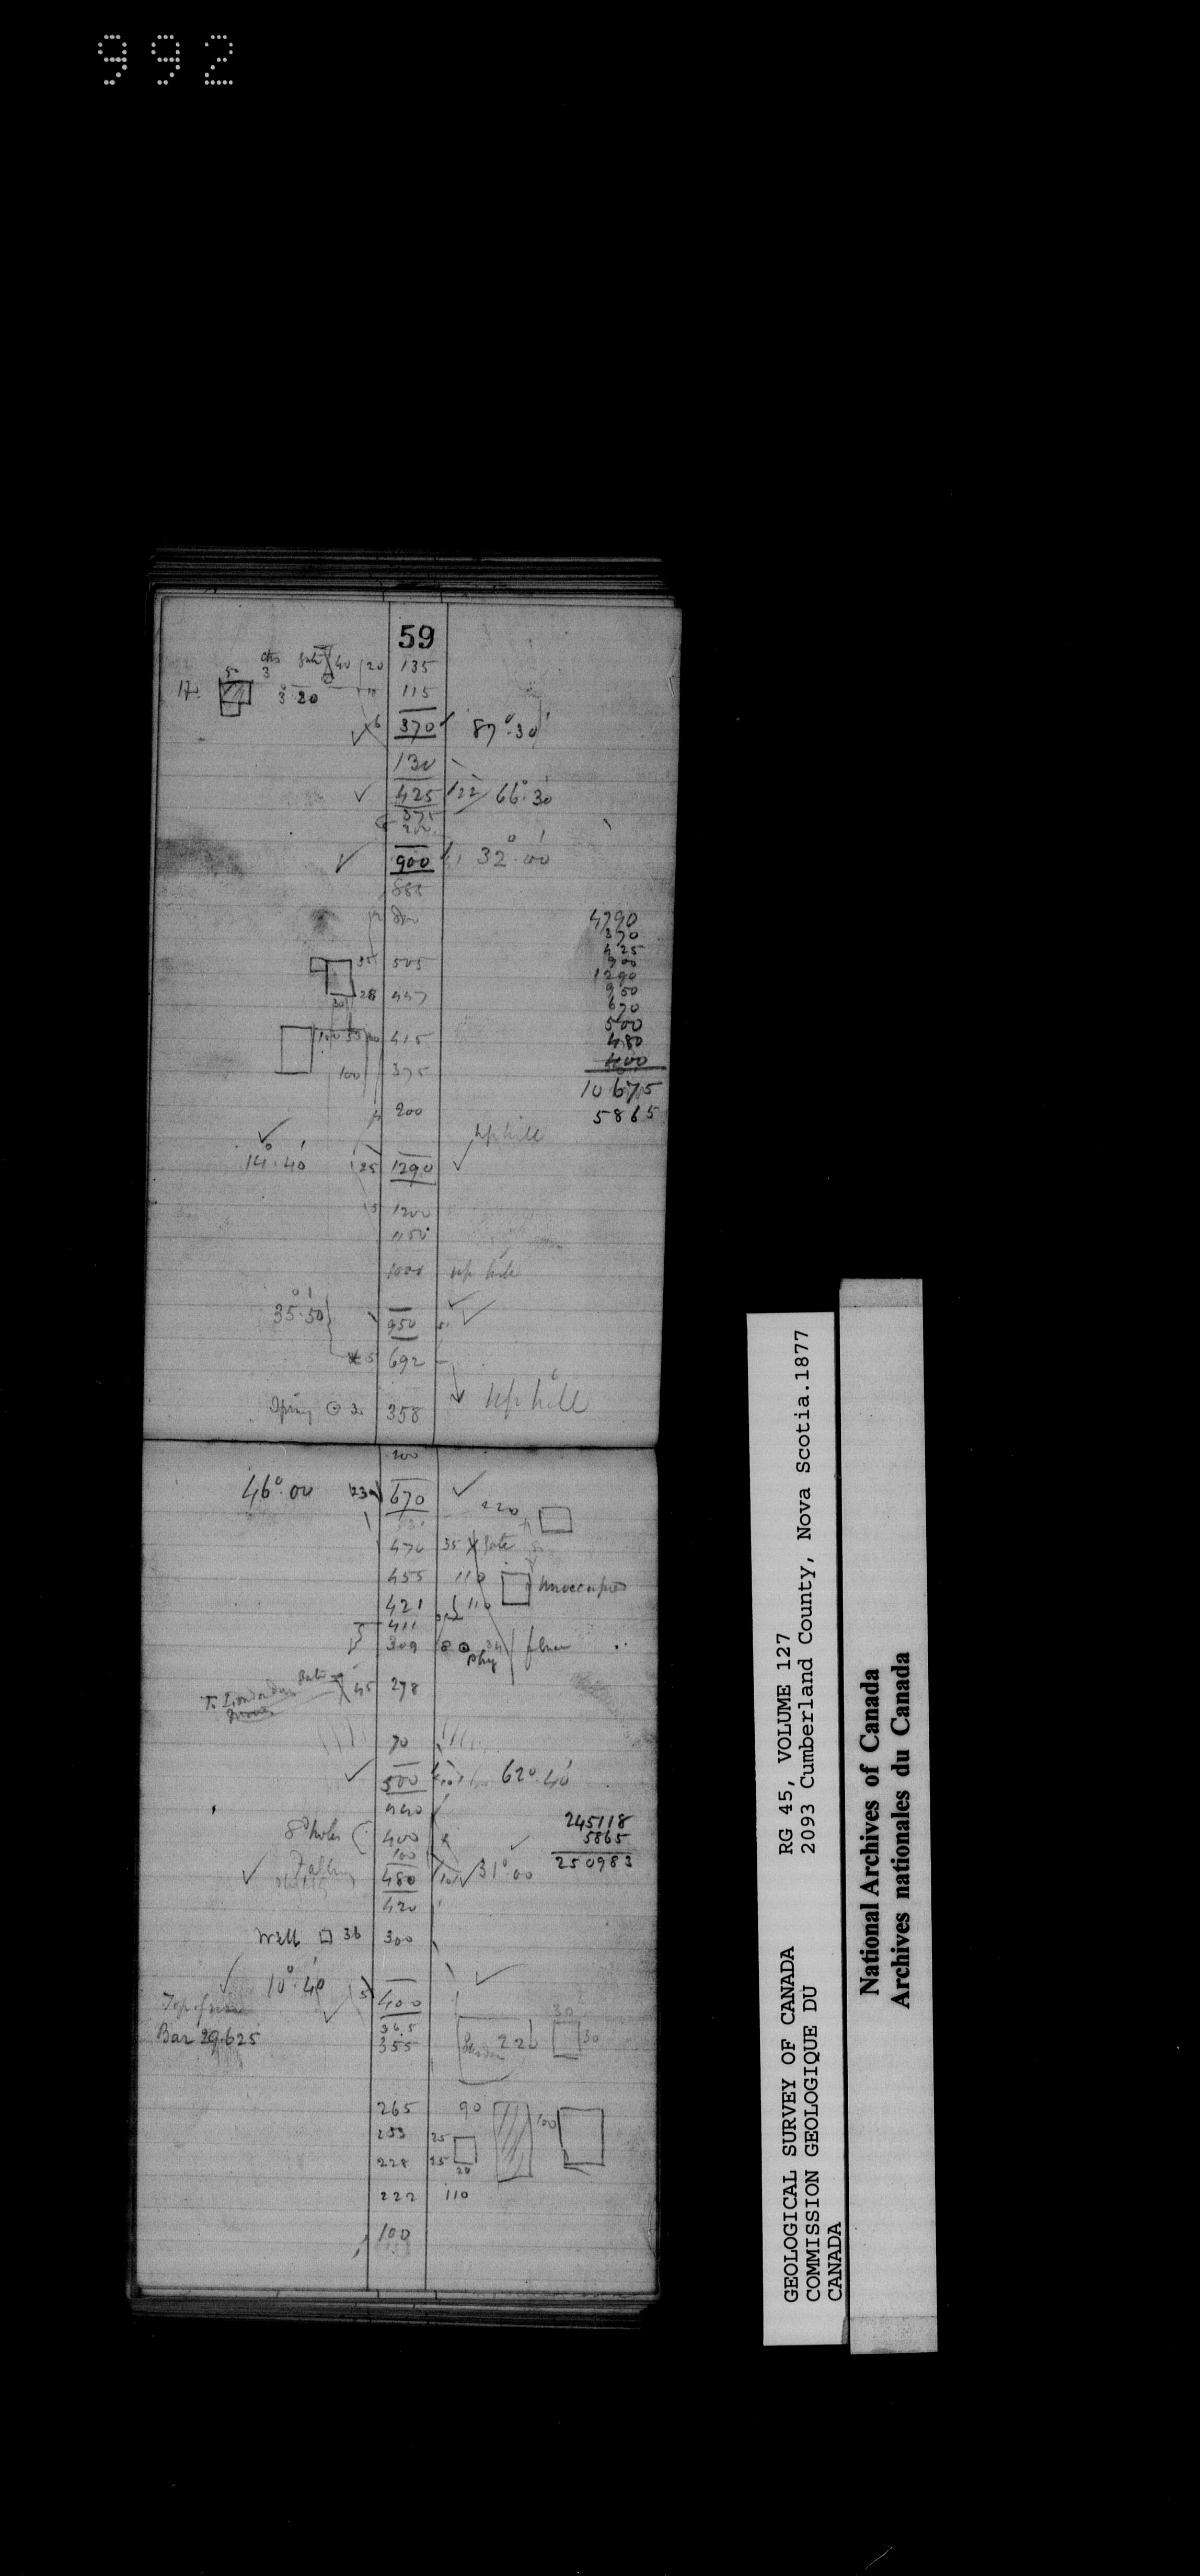 992
59
chs gate 40 20 135
50 3
3 20 115
6 370 87°.30'
130
425 122 66°.30'
375
200
900 32°.00'
885
800
35 505
20 28 447
100 55 415
100 375
200
4790
370
425
900
1290
950
670
500
480
400
10675
5865
up hill
14°.40' 25 1290
5 1200
1150
1000 up hill
35°.50' 950
5 692
Spring 358 up hill
200
46°.00 670 220
470 35 Gate
455 110 Unoccupied
421 110
411
309 8
To Londonderry Gate 45 278
70
500 62°.40'
440
400
Falling 100
480 31°.00
420
245118
5865
250983
Well 36 300
10°.40' 5 400
Bar 29.625 365
355 220 30 30
265 90
253 25 100
228 25
20
222 110
100
GEOLOGICAL SURVEY OF CANADA RG 45, VOLUME 127
COMMISSION GEOLOGIQUE DU 2093 Cumberland County, Nova Scotia.1877
CANADA
National Archives of Canada
Archives nationales du Canada